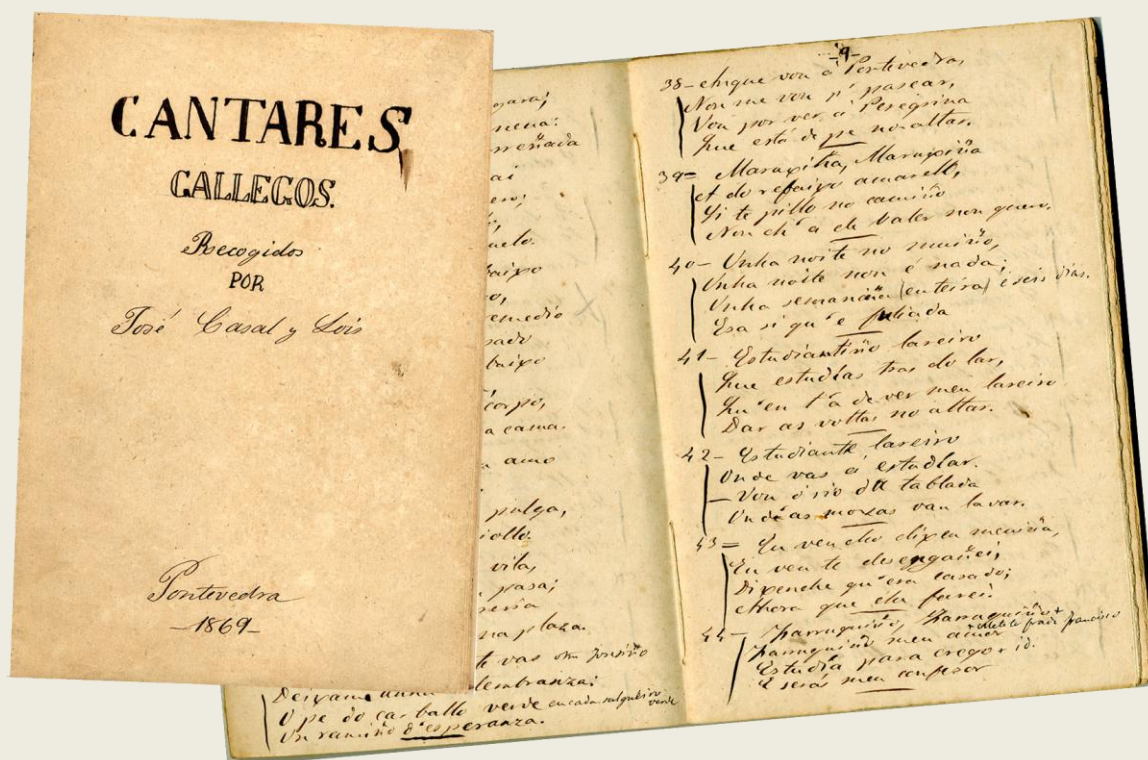 CANTARES
GALLEGOS.
Recogidos
POR
José Casal y Lois
Pontevedra
-1869-
nena:
ai
baixo
remedio
baixo
corpo,
a cama.
amo
pulga,
vila,
pasa;
na plaza.
te vas
Deixame unha lembranza:
O pe do carballo verde en cada salgueiro verde
Un ramiño d'esperanza.
-9-
38- chegue vou á Pontevedra,
Non me vou p'ó pasear,
Vou por ver á Peregrina
Que está de pe no altar.
39= Maruxiña, Maruxiña
A do refaixo amarelo,
Si te pillo no camiño
Non ch'a de valer non quero.
40- Unha noite no muiño,
Unha noite non é nada;
Unha semaniña (enteira) é seis dias.
Esa si qu'e fuliada
41- Estudiantiño lareiro
Que estudias tras do lar,
Qu'en t'a de ver meu lareiro
Dar as voltas no altar.
42- Estudiante lareiro
Onde vas á estudiar.
-Vou ó rio da tablada
Onde as moxas van lavar.
43= Eu ven cho dixen meniña,
Eu ven te desengañei,
Dixenche qu'era casado;
Ahora que che farei.
44- Farruquiño, Farruquiño +
Farruquiño meu amor + frade francisco
Estudia para cregor id.
E serás meu confesor